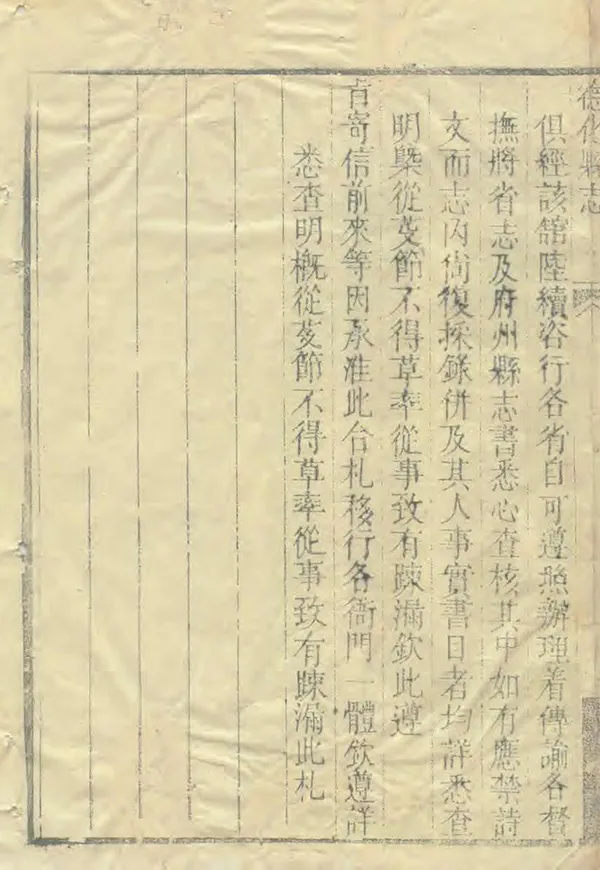 德化縣志
俱經該舘陸續咨行各省自可遵照辦理着傳諭各督
撫將省志及府州縣志書悉心查核其中如有應禁詩
文而志內尙復採錄併及其人事實書目者均詳悉查
明槩從芟節不得草率從事致有踈漏欽此遵
㫖寄信前來等因承准此合札移行各衙門一體欽遵詳
悉查明概從芟節不得草率從事致有踈漏此札